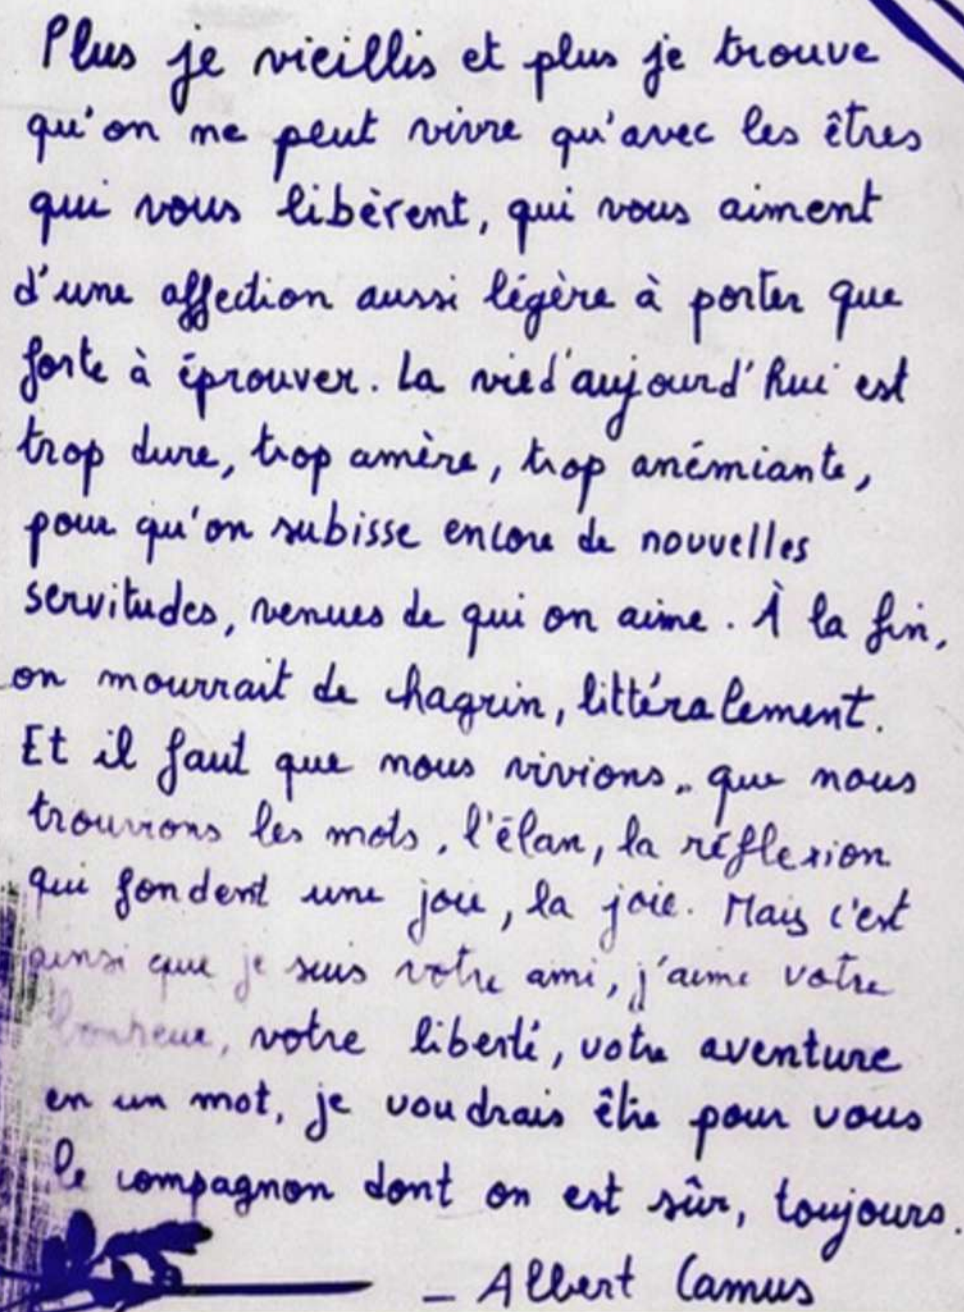 Plus je vieillis et plus je trouve
qu'on ne peut vivre qu'avec les êtres
qui vous libèrent, qui vous aiment
d'une affection aussi légère à porter que
forte à éprouver. La vie d'aujourd'hui est
trop dure, trop amère, trop anémiante,
pour qu'on subisse encore de nouvelles
servitudes, venues de qui on aime. À la fin,
on mourrait de chagrin, littéralement.
Et il faut que nous vivions, que nous
trouvions les mots, l'élan, la réflexion
qui fondent une joie, la joie. Mais c'est
ainsi que je suis votre ami, j'aime votre
bonheur, votre liberté, votre aventure
en un mot, je voudrais être pour vous
le compagnon dont on est sûr, toujours.
– Albert Camus